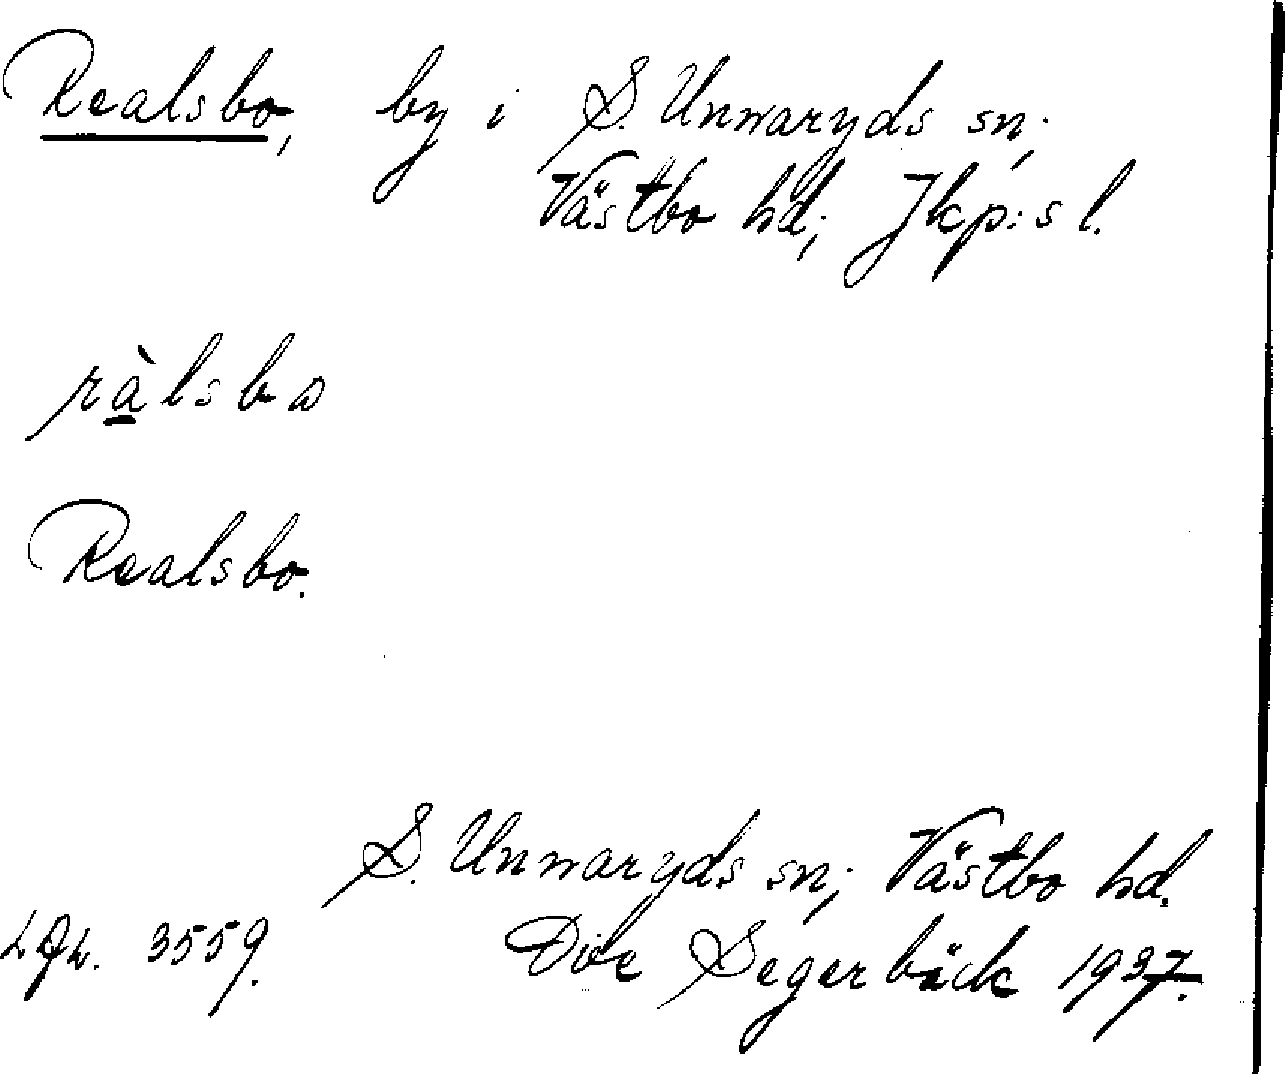 Realsbo, by i S. Unnaryds sn;
Västbo hd; Jkp:s l.
ràlsbo
Realsbo.
S. Unnaryds sn; Västbo hd.
3559. Segerbäck 1937.